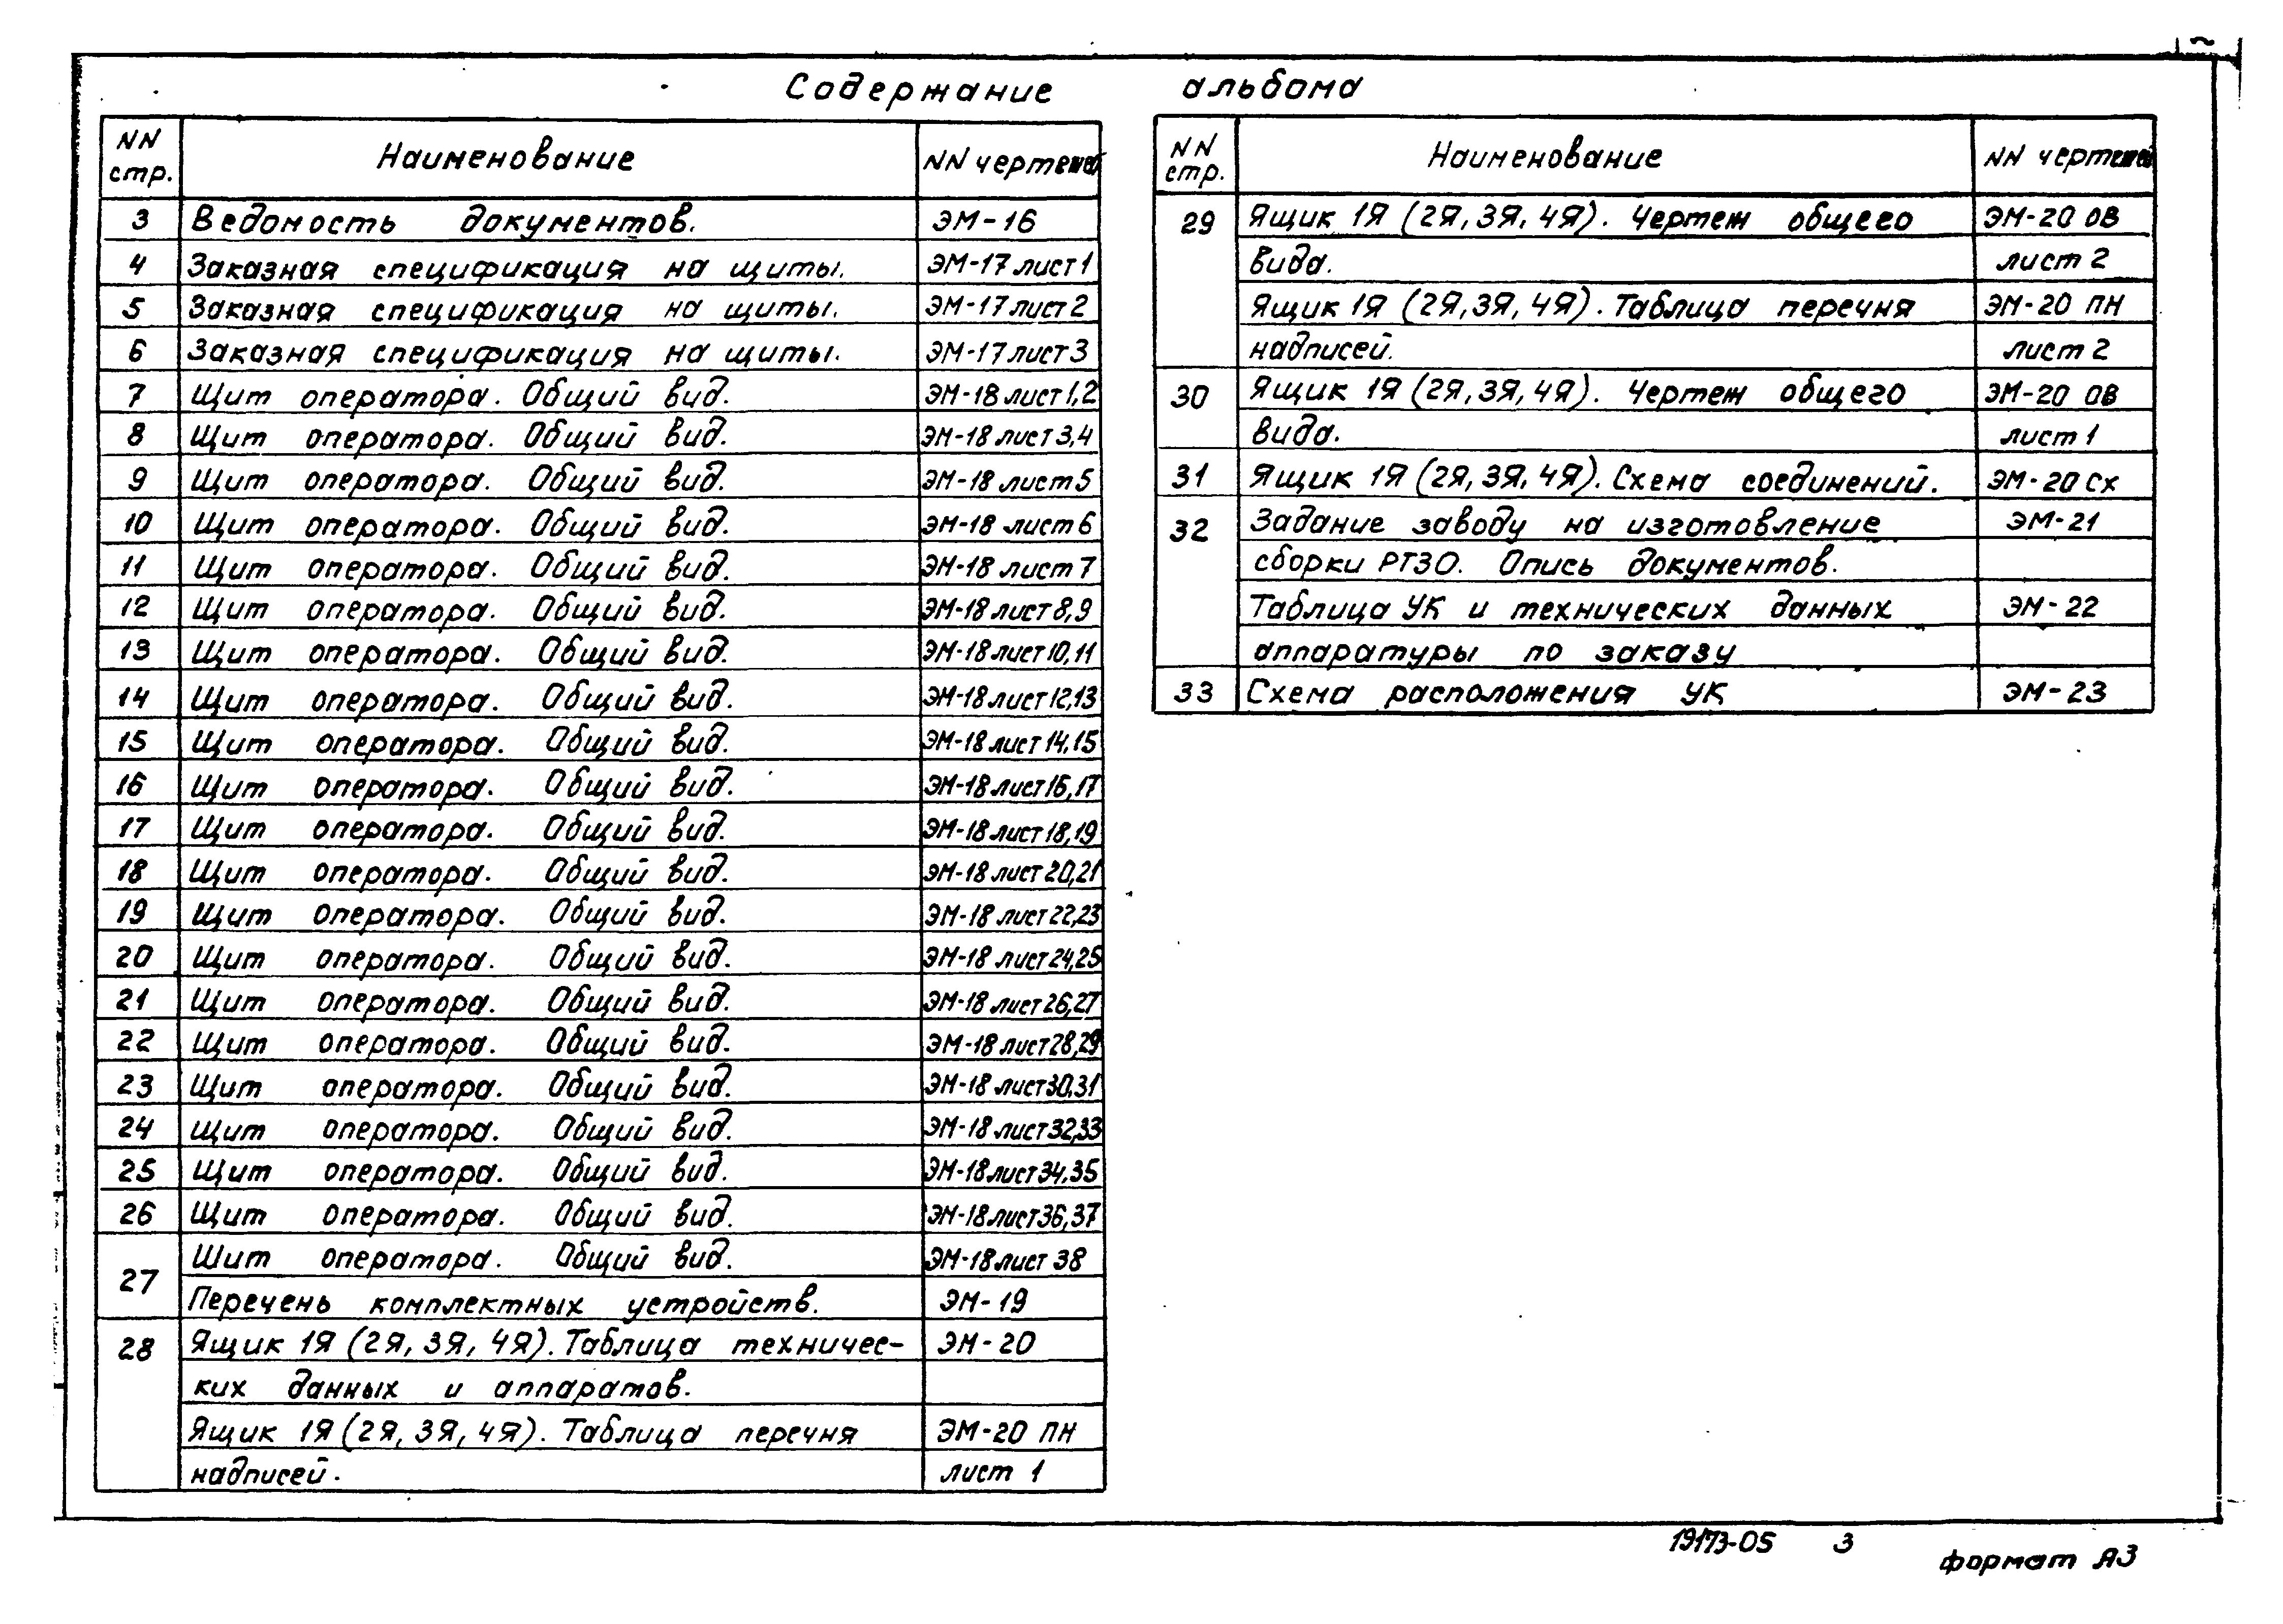 Содержание альбома
NN стр. Наименование NN чертежей
3 Ведомость документов. ЭМ-16
4 Заказная спецификация на щиты. ЭМ-17 лист 1
5 Заказная спецификация на щиты. ЭМ-17 лист 2
6 Заказная спецификация на щиты. ЭМ-17 лист 3
7 Щит оператора. Общий вид. ЭМ-18 лист 1,2
8 Щит оператора. Общий вид. ЭМ-18 лист 3,4
9 Щит оператора. Общий вид. ЭМ-18 лист 5
10 Щит оператора. Общий вид. ЭМ-18 лист 6
11 Щит оператора. Общий вид. ЭМ-18 лист 7
12 Щит оператора. Общий вид. ЭМ-18 лист 8,9
13 Щит оператора. Общий вид. ЭМ-18 лист 10,11
14 Щит оператора. Общий вид. ЭМ-18 лист 12,13
15 Щит оператора. Общий вид. ЭМ-18 лист 14,15
16 Щит оператора. Общий вид. ЭМ-18 лист 16,17
17 Щит оператора. Общий вид. ЭМ-18 лист 18,19
18 Щит оператора. Общий вид. ЭМ-18 лист 20,21
19 Щит оператора. Общий вид. ЭМ-18 лист 22,23
20 Щит оператора. Общий вид. ЭМ-18 лист 24,25
21 Щит оператора. Общий вид. ЭМ-18 лист 26,27
22 Щит оператора. Общий вид. ЭМ-18 лист 28,29
23 Щит оператора. Общий вид. ЭМ-18 лист 30,31
24 Щит оператора. Общий вид. ЭМ-18 лист 32,33
25 Щит оператора. Общий вид. ЭМ-18 лист 34,35
26 Щит оператора. Общий вид. ЭМ-18 лист 36,37
27 Шит оператора. Общий вид. ЭМ-18 лист 38
Перечень комплектных устройств. ЭМ-19
28 Ящик 1Я (2Я, 3Я, 4Я). Таблица техничес- ЭМ-20
ких данных и аппаратов.
Ящик 1Я (2Я, 3Я, 4Я). Таблица перечня ЭМ-20 ПН
надписей. лист 1
NN стр. Наименование NN чертежей
29 Ящик 1Я (2Я, 3Я, 4Я). Чертеж общего ЭМ-20 ОВ
вида. лист 2
Ящик 1Я (2Я, 3Я, 4Я). Таблица перечня ЭМ-20 ПН
надписей. лист 2
30 Ящик 1Я (2Я, 3Я, 4Я). Чертеж общего ЭМ-20 ОВ
вида. лист 1
31 Ящик 1Я (2Я, 3Я, 4Я). Схема соединений. ЭМ-20 СХ
32 Задание заводу на изготовление ЭМ-21
сборки РТЗО. Опись документов.
Таблица УК и технических данных ЭМ-22
аппаратуры по заказу
33 Схема расположения УК ЭМ-23
19173-05 3
формат А3